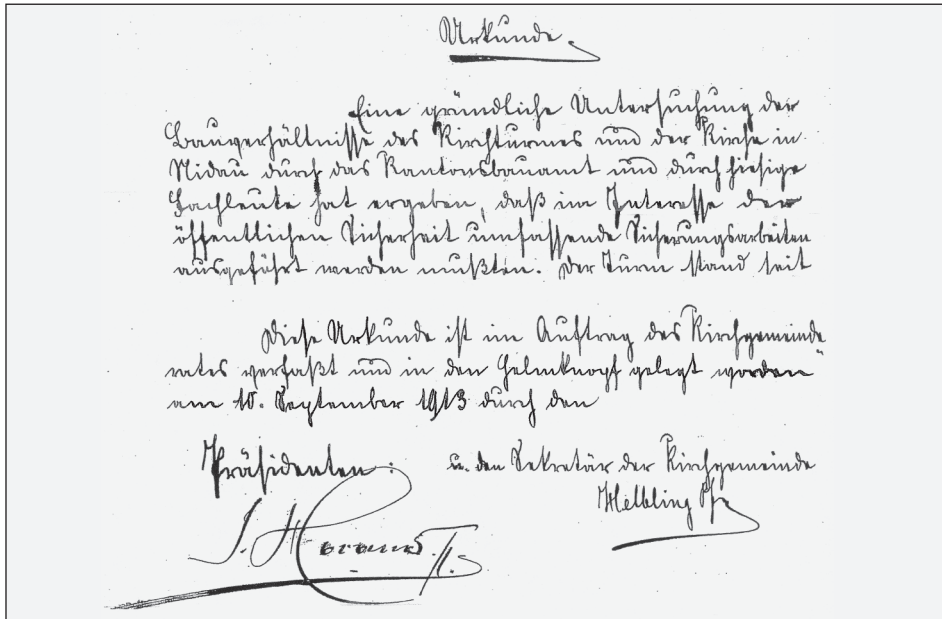 Urkunde.
Eine gründliche Untersuchung der
Bauverhältnisse des Kirchturmes und der Kirche in
Nidau durch das Kantonsbauamt und durch hiesige
Fachleute hat ergeben, daß im Interesse der
öffentlichen Sicherheit umfassende Sicherungsarbeiten
ausgeführt werden mußten. Der Turm stand seit
Diese Urkunde ist im Auftrag des Kirchgemeinde
rates verfaßt und in den Helmknopf gelegt worden
am 10. September 1913 durch den
Präsidenten: u. den Sekretär der Kirchgemeinde
Helbling Pfr
J.